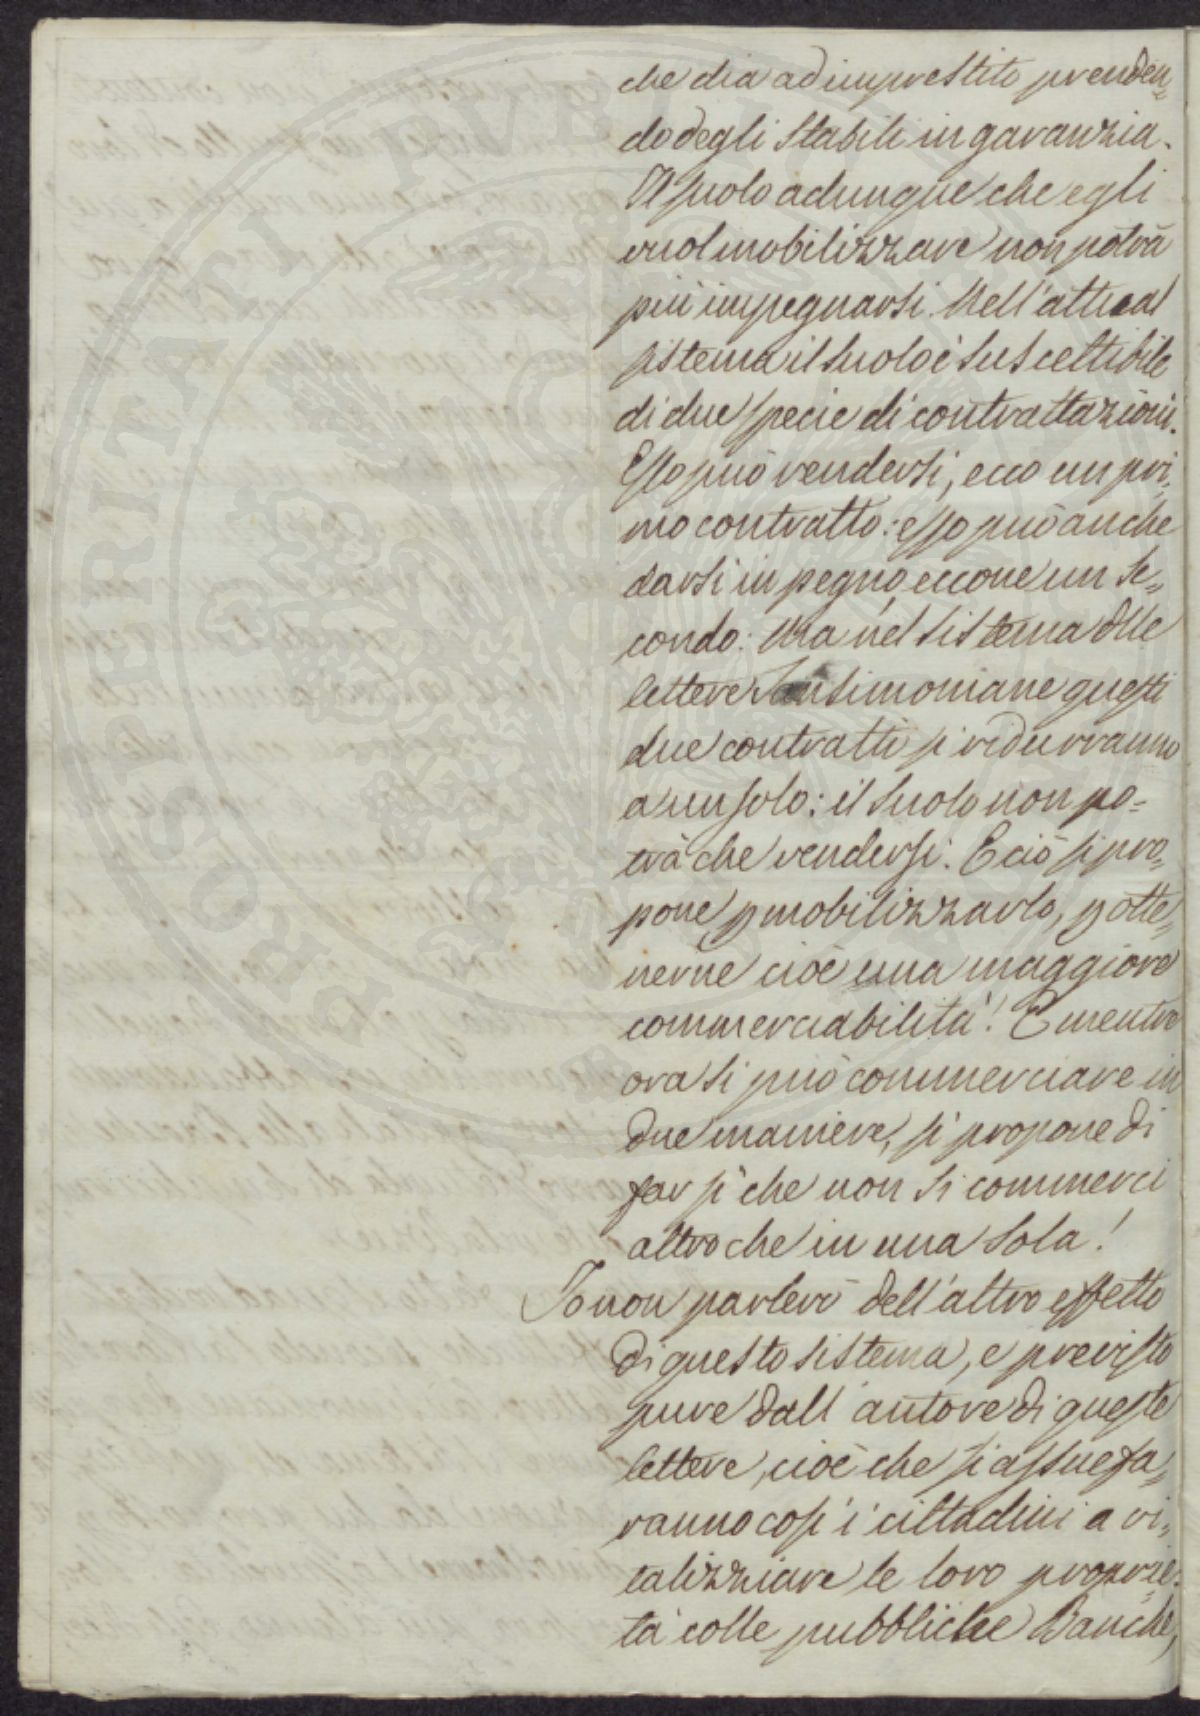 che dia ad imprestito prenden=
do degli stabili in garanzia.
Il suolo adunque che egli
vuol mobilizzare non potrà
più impegnarsi. Nell'attual
sistema il suolo è suscettibile
di due specie di contrattazioni.
Esso può vendersi, ecco un pri=
mo contratto: esso può anche
darsi in pegno, eccone un se=
condo. Ma nel sistema dlle
lettere Sansimoniane questi
due contratti si ridurranno
a un solo: il suolo non po=
trà che vendersi. E ciò si pro=
pone p mobilizzarlo, p otte=
nerne cioè una maggiore
commerciabilità! E mentre
ora si può commerciare in
due maniere, si propone di
far sì che non si commerci
altro che in una sola!
Io non parlerò dell'altro effetto
di questo sistema, e previsto
pure dall'autore di queste
lettere, cioè che si assuefa=
ranno così i cittadini a vi=
talizziare le loro proprie=
tà colle pubbliche Banche,
PROSPERITATI PVBLICAE